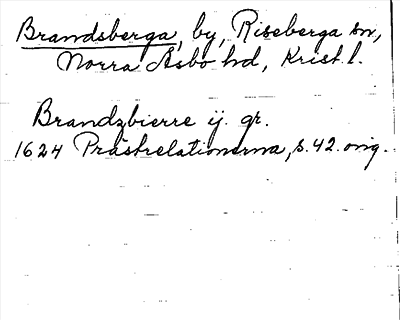 Brandsberga, by, Riseberga sn,
Norra Åsbo hd, Krist. l.
Brandzbierre ij. gr.
1624 Prästrelationerna, s. 42. orig.